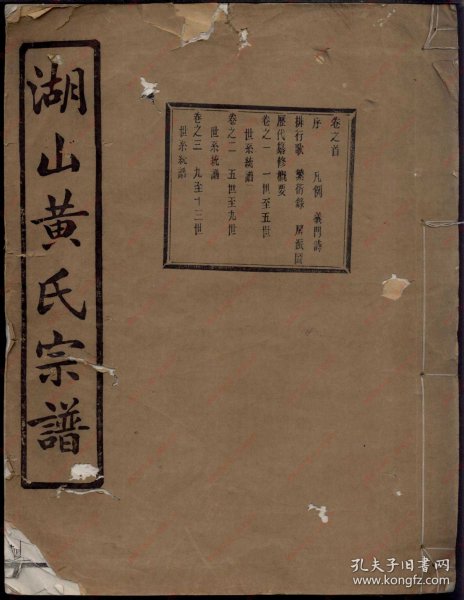 湖山黃氏宗譜
卷之首
序 凡例 義門詩
排行歌 繁衍錄 居派圖
歷代纂修概要
卷之一 一世至五世
世系統譜
卷之二 五世至九世
世系統譜
卷之三 九至十三世
世系統譜
孔夫子旧书网
www.kongfz.com